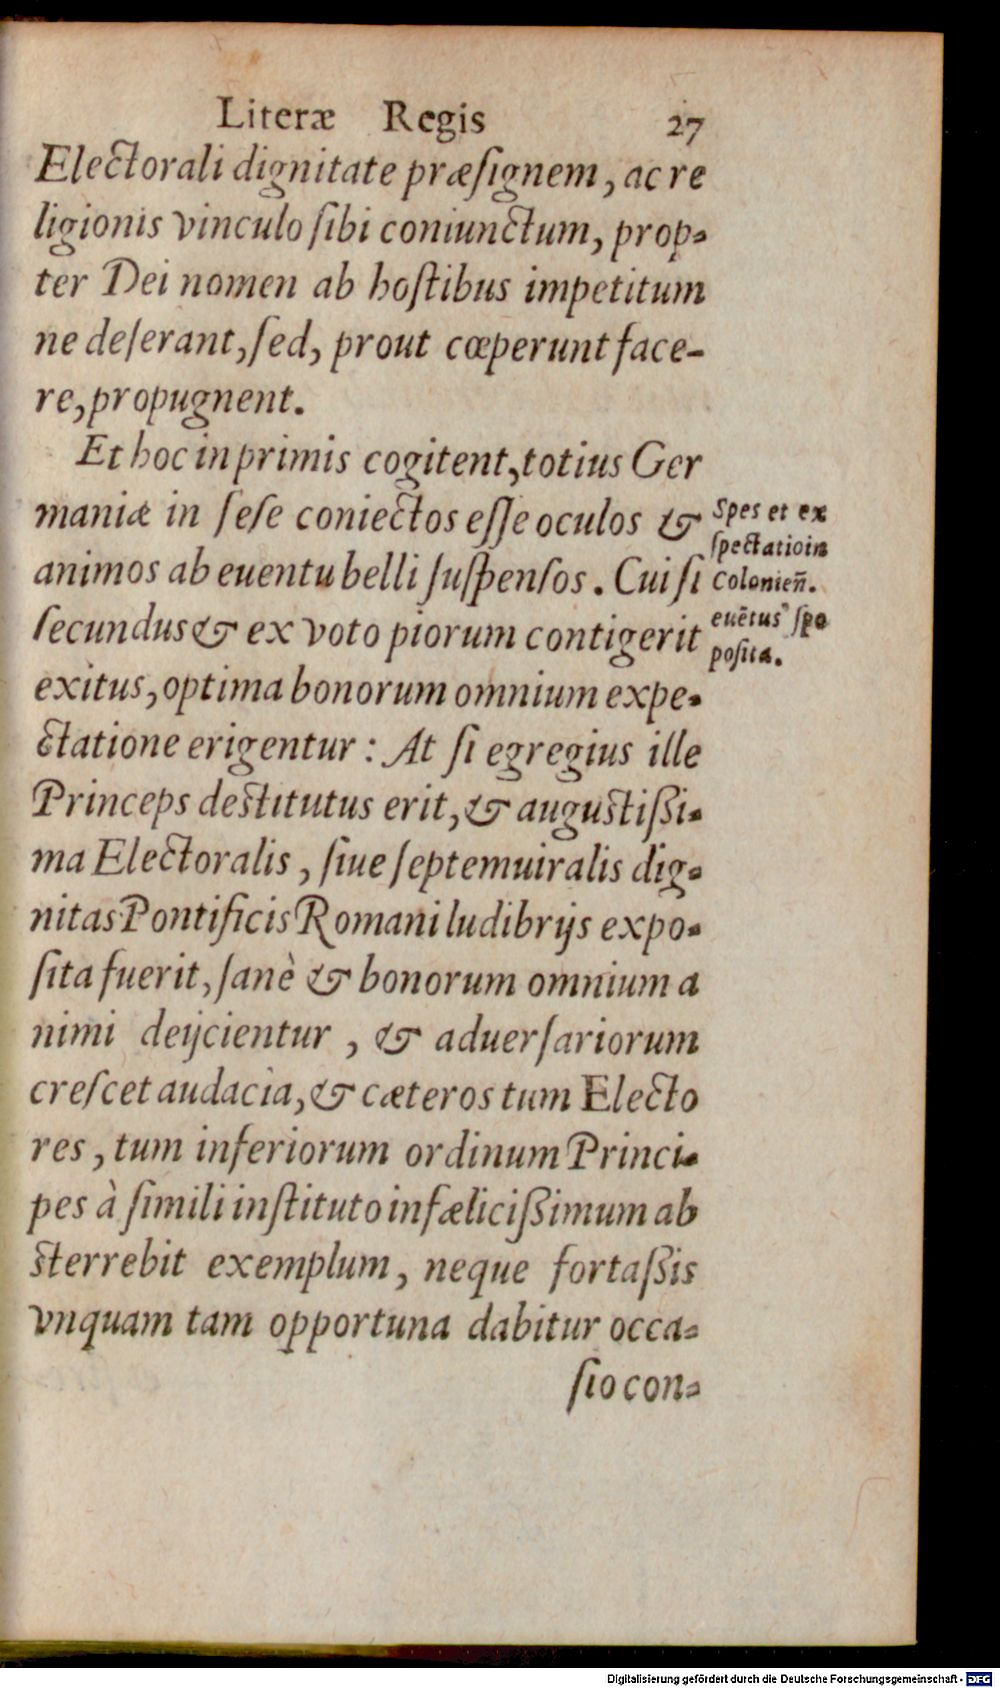 Literæ Regis 27
Electorali dignitate præſignem, ac re
ligionis vinculo ſibi coniunctum, prop-
ter Dei nomen ab hoſtibus impetitum
ne deſerant, ſed, prout cœperunt face-
re, propugnent.
Et hoc inprimis cogitent, totius Ger
maniæ in ſeſe coniectos eſſe oculos &
animos ab euentu belli ſuſpenſos. Cui ſi
ſecundus & ex voto piorum contigerit
exitus, optima bonorum omnium expe-
ctatione erigentur: At ſi egregius ille
Princeps destitutus erit, & augustißi-
ma Electoralis, ſiue ſeptemuiralis dig-
nitas Pontificis Romani ludibrijs expo-
ſita fuerit, ſanè & bonorum omnium a
nimi deijcientur, & aduerſariorum
creſcet audacia, & cæteros tum Electo
res, tum inferiorum ordinum Princi-
pes à ſimili inſtituto infælicißimum ab
sterrebit exemplum, neque fortaßis
vnquam tam opportuna dabitur occa-
ſio con-
Spes et ex
ſpectatio in
Colonieñ.
euẽtus ſpe
poſita.
Digitalisierung gefördert durch die Deutsche Forschungsgemeinschaft - DFG